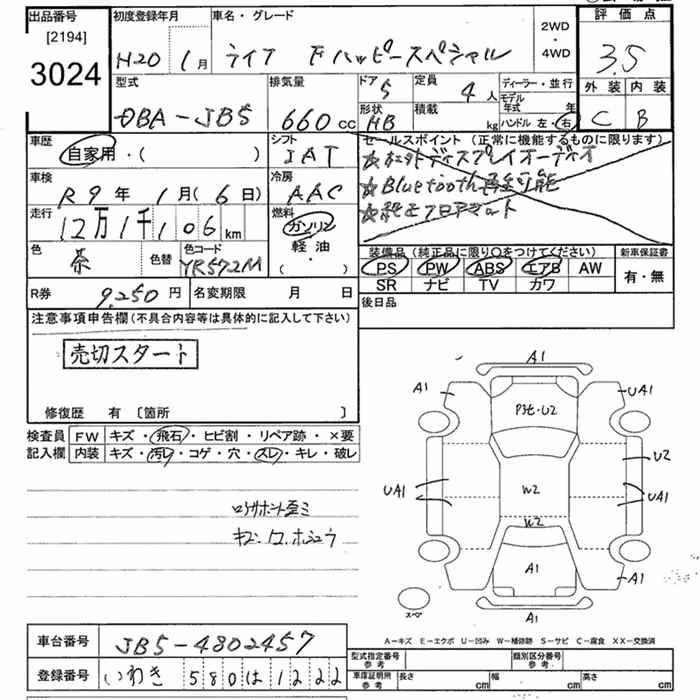 出品番号 初度登録年月 車名・グレード 2WD ・ 4WD 評価点
[2194]
3024 H20 1月 ライフ F ハッピースペシャル 3.5
型式 排気量 ドア 5 定員 4人 ディーラー・並行 外装 内装
モデル年式 年
DBA-JB5 660cc 形状 HB 積載 kg ハンドル 左・右 C B
車歴 シフト セールスポイント(正常に機能するものに限ります)
自家用・( ) IAT
車検 冷房 ☆Bluetooth再生可能
R9年 1月(6日) AAC
走行 燃料
12万1千106km ガソリン
軽油
・( )
色 茶 色替 色コード YR572M
装備品(純正品に限り○をつけてください) 新車保証書
PS PW ABS エアB AW 有・無
SR ナビ TV カワ
R券 9,250円 名変期限 月 日 後日品
注意事項申告欄(不具合内容等は具体的に記入して下さい)
売切スタート
修復歴 有 [箇所 ]
検査員 FW キズ・飛石・ヒビ割・リペア跡・×要
記入欄 内装 キズ・汚レ・コゲ・穴・スレ・キレ・破レ
A1
A1 UA1
P3モ・U2
U2
UA1 W2 UA1
W2
A1
A1
スペ A1
A-キズ E-エクボ U-凹み W-補修跡 S-サビ C-腐食 XX-交換済
車台番号 JB5-4802457
登録番号 いわき 580 は 1222
型式指定番号 参考 類別区分番号 参考
車庫証明所 参考 長さ cm 幅 cm 高さ cm